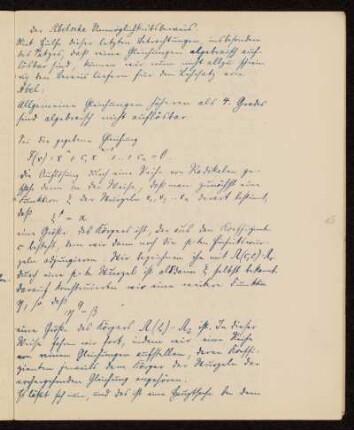 der Abelsche Unmöglichkeitsbeweis.
Mit Hülfe dieser letzten Betrachtungen, insbesondere
des Satzes, daß eine Gleichung algebraisch auf-
lösbar sind, können wir nun nicht allzu schwie-
rig den Beweis liefern für den Lehrsatz von
Abel:
Allgemeine Gleichungen höheren als 4. Grades
sind algebraisch nicht auflösbar
Sei die gegebene Gleichung
die Auflösung durch eine Reihe von Radikalen ge-
schehe dann in der Weise, daß man zunächst eine
Funktion ξ der Wurzeln x₁, x₂ ... xₙ derart bestimmt,
daß
ξᵖ = α
eine Größe des Körpers ist, der aus den Koeffizienten
c besteht, dem wir dann noch die p-ten Einheitswur-
zeln adjungieren. Wir bezeichnen ihn mit
durch eine p-te Wurzel ist alsdann ξ selbst bekannt.
Darauf konstruieren wir eine weitere Funktion
η, so daß
η^q = β
eine Größe des Körpers ist. In dieser
Weise fahren wir fort, indem wir eine Reihe
von reinen Gleichungen aufstellen, deren Koeffi-
zienten jeweils dem Körper der Wurzeln der
vorhergehenden Gleichung angehören.
Es läßt sich nun, und das ist eine Hauptsache bei dem